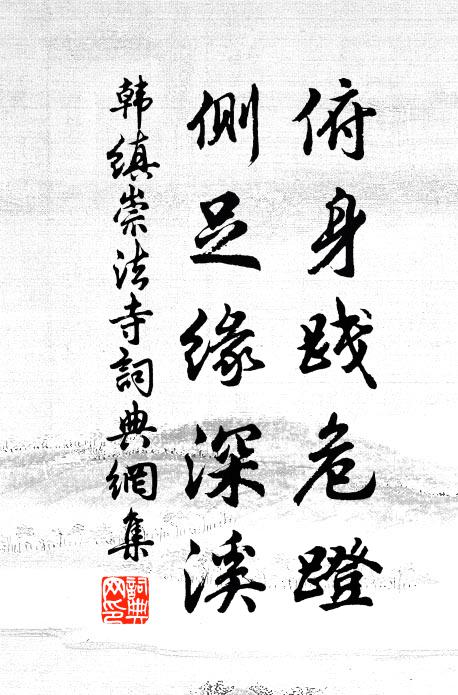 俯身践危蹬
侧足缘深溪
韩缜崇法寺词典網集
詞典網印